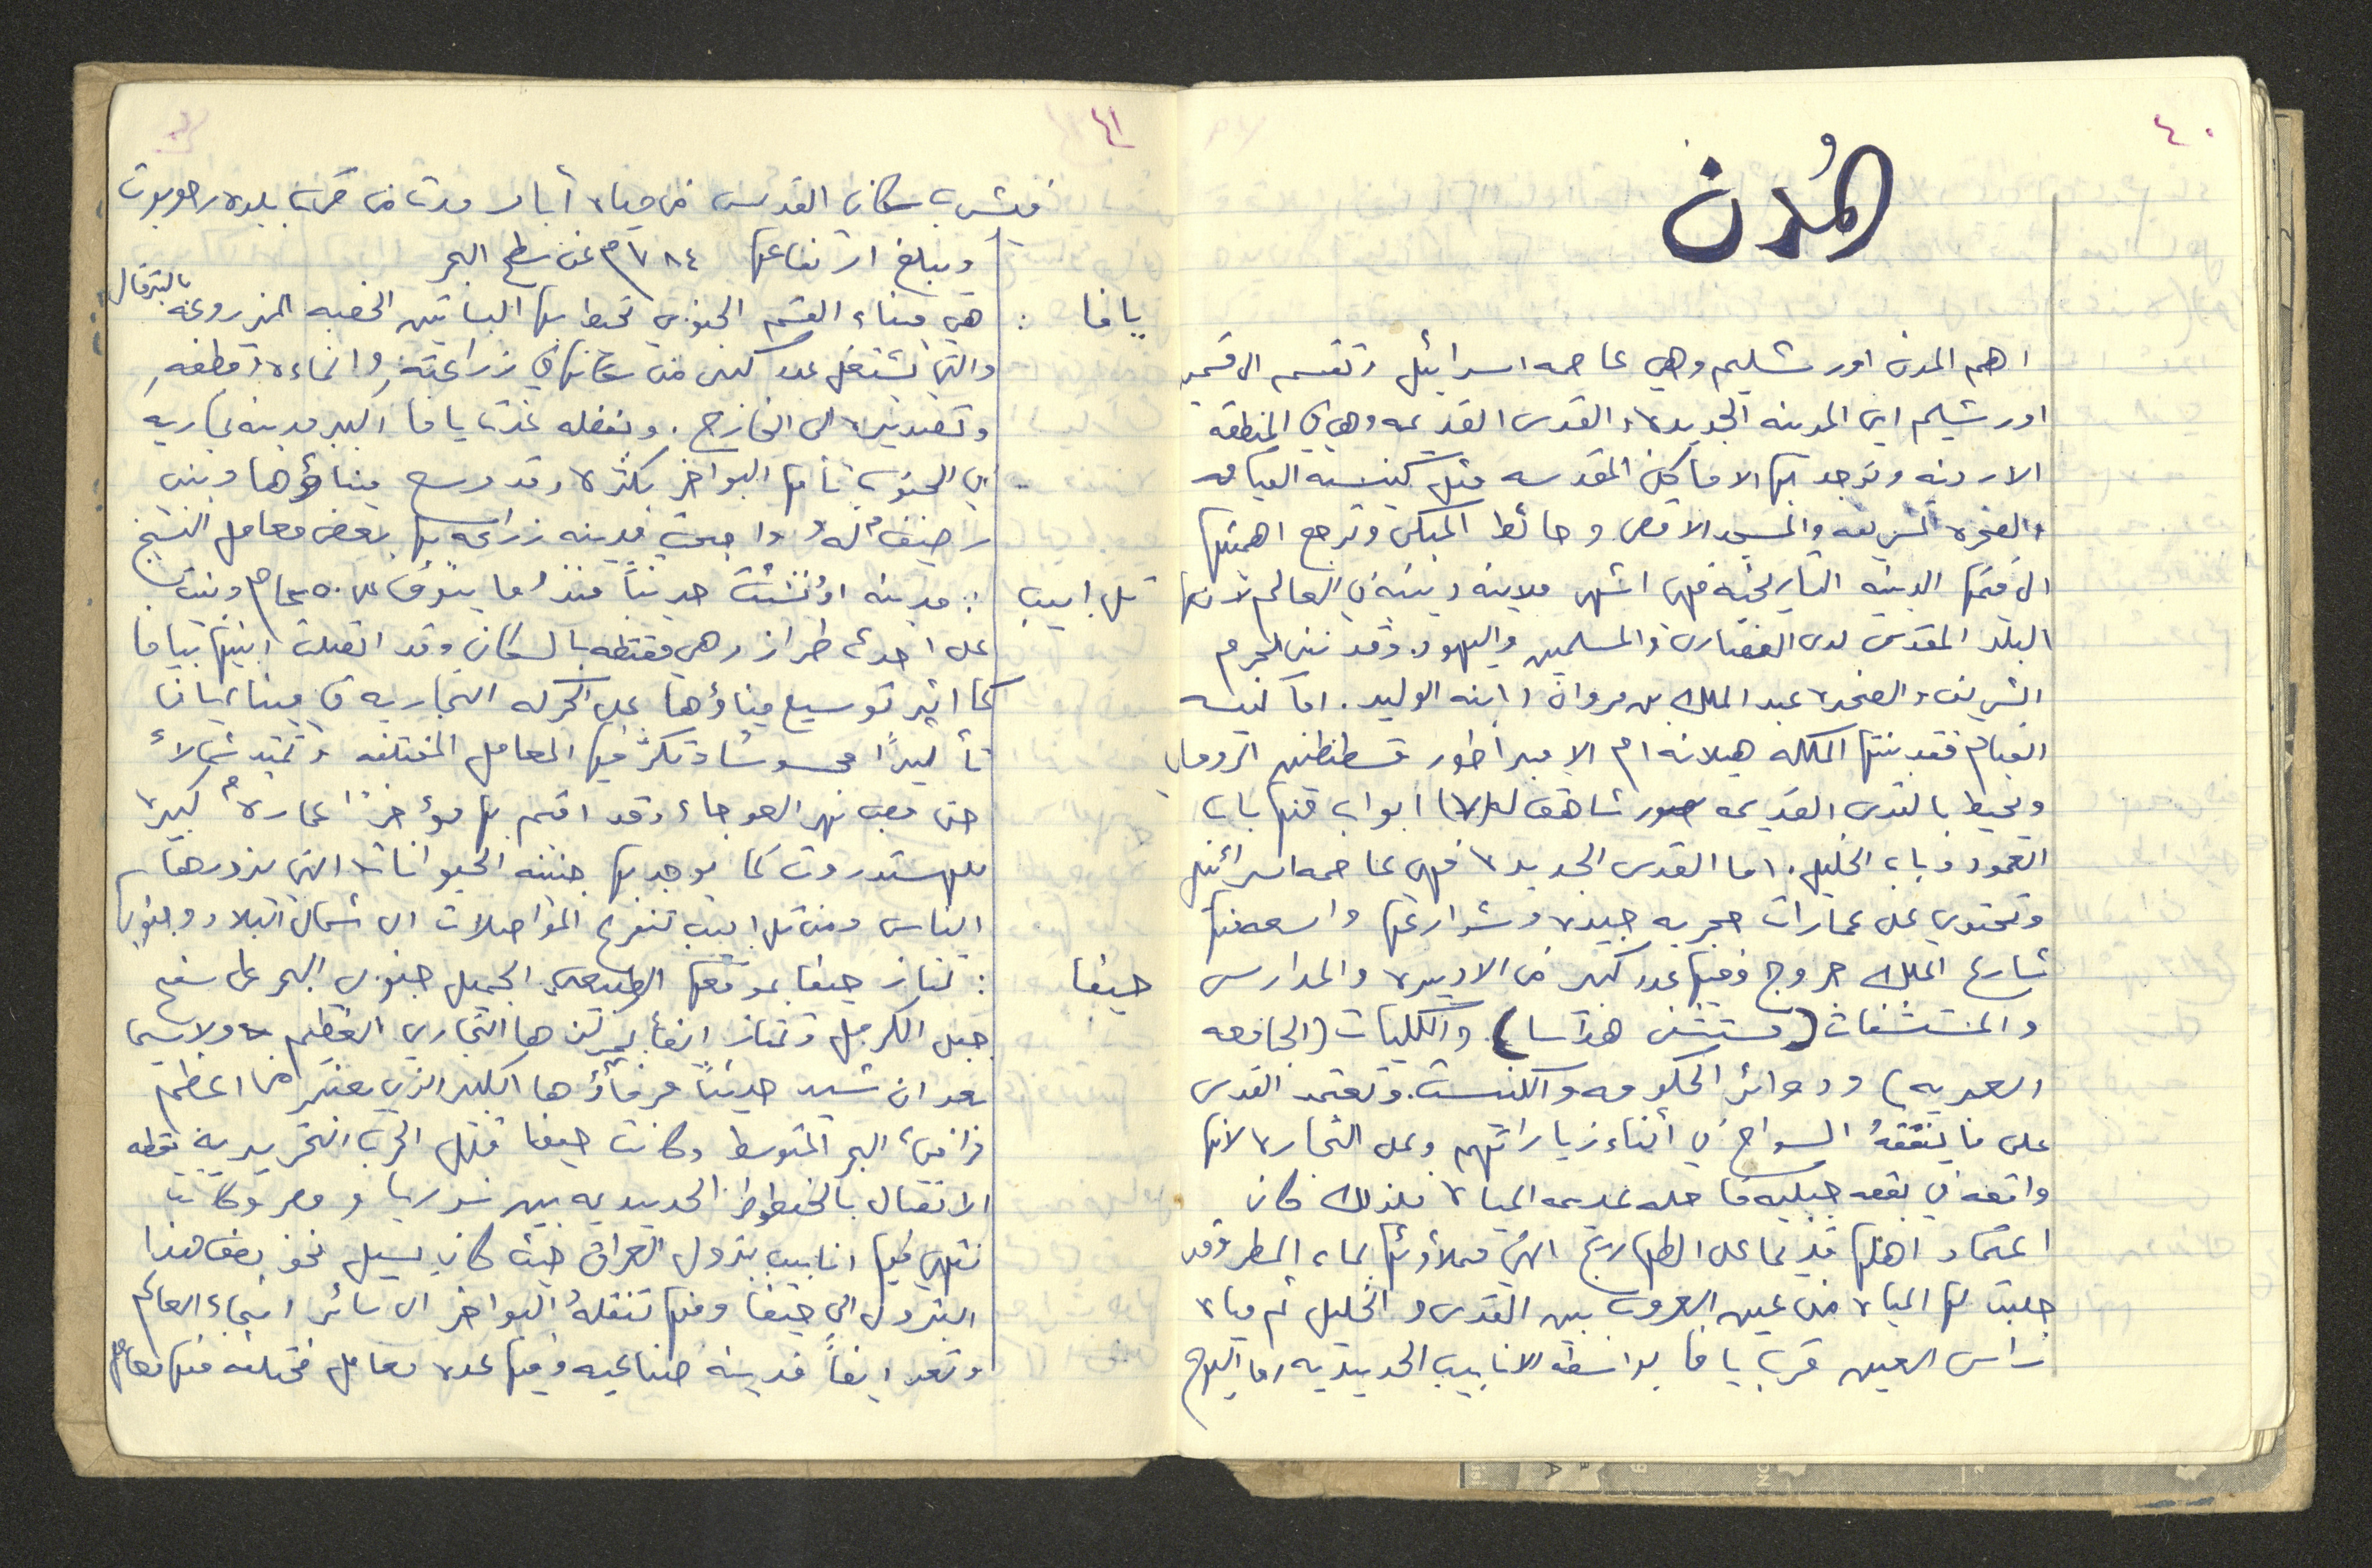 ٤٠
المُدن
اهم المدن اورشليم وهي عاصمه اسرائيل وتقسم الى قسمين
اورشليم اي المدينه الجديدة والقدس القديمه وهي في المنطقه
الاردنيه وتوجد بها الاماكن المقدسه مثل كنيسه القيامه
والصخره الشريفه والمسجد الاقصى وحائط المبكى وترجع اهميتها
الى قيمتها الدينيه التاريخيه فهي اشهر مدينه دينيه في العالم لانها
البلد المقدس لدى النصارى والمسلمين واليهود. وقد بنى الحرم
الشريف والصخرة عبد الملك بن مروان وابنه الوليد. اما كنيسه
القيام فقد بنتها الملكه هيلانه ام الامبراطور قسطنطين الروماني
ويحيط بالقدس القديمه سور شاهق له (٧) ابواب منها باب
العمود وباب الخليل. اما القدس الجديدة فهي عاصمه اسرائيل
وتحتوي على عمارات حجريه جيدة وشوارعها واسعه منها
شارع الملك جورج وفيها عدد كبير من الاديرة والمدارس
والمستشفيات (مستشفى هداسا) والكليات (الجامعه
العبريه) ودوائر الحكومه والكنيست. وتعتمد القدس
على ما ينفقهُ السواح في أثناء زياراتهم وعلى التجارة لانها
واقعه في بقعه جبليه قاحله عديمه المياه فلذلك كان
اعتماد اهلها قديما على الصهاريج التي يملأونها بماء المطر وقد
جلبت لها المياه من عين العروب بين القدس والخليل ثم مياه
راس العين قرب يافا بواسطه الانابيب الحديديه اما اليوم
٤١
فيشرب سكان القدس من مياه أبار مدت من قرب بلدة رحوبوت
ويبلغ ارتفاعها ٧٨٤م عن سطح البحر
يافا : هي ميناء القسم الجنوبي تحيط بها البساتين الخصبه المزروعه بالبرتقال
والتي يشتغل عدد كبير من سكانها في زراعتهِ وانماءه وقطفهِ
وتصديره الى الخارج. وبفضله غدت يافا اكبر مدينه تجاريه
في الجنوب تأمها البواخر بكثرة وقد وسع ميناؤها وبني
رصيف لهُ واصبحت مدينه زراعيه بها بعض معامل النسيج
تل ابيب : مدينه اُنشئت حديثاً منذُ ما ينوف على ٥٠ عام وبنيت
على احدث طراز وهي مقتظه بالسكان وقد اتصلت ابنيتها بيافا
كما اثر توسيع ميناؤها على الحركه التجاريه في ميناء يافا
تأثيرًا محسوسًا وتكثر فيها المعامل المختلفه وتمتد شمالاً
حتى مصب نهر العوجاء وقد اقيم بها مؤخرًا عمارةٌ كبيرة
للهستدروت كما يوجد بها جنينه الحيوانات التي يزورها
الناس ومن تل ابيب تتفرع المواصلات الى شمال البلاد وجنوبها
حيفا : تمتاز حيفا بموقعها الطبيعي الجميل جنوبي البحر على سفح
جبل الكرمل وتمتاز ايضاً بمركزها التجاري العظيم ولاسيما
بعد ان شيد حديثاً مرفأؤها الكبير الذي يعتبر من اعظم
مرافئ البحر المتوسط وكانت حيفا قبل الحرب التحريرية نقطه
الاتصال بالخطوط الحديديه بين سوريا ومصر وكانت
تنتهي فيها انابيب بترول العراق حيث كان يسيل نحو نصف هذا
البترول الى حيفا ومنها تنقلهُ البواخر الى سائر انحاء العالم
وتعد ايضاً مدينه صناعيه وفيها عدة معامل مختلفه منها معامل